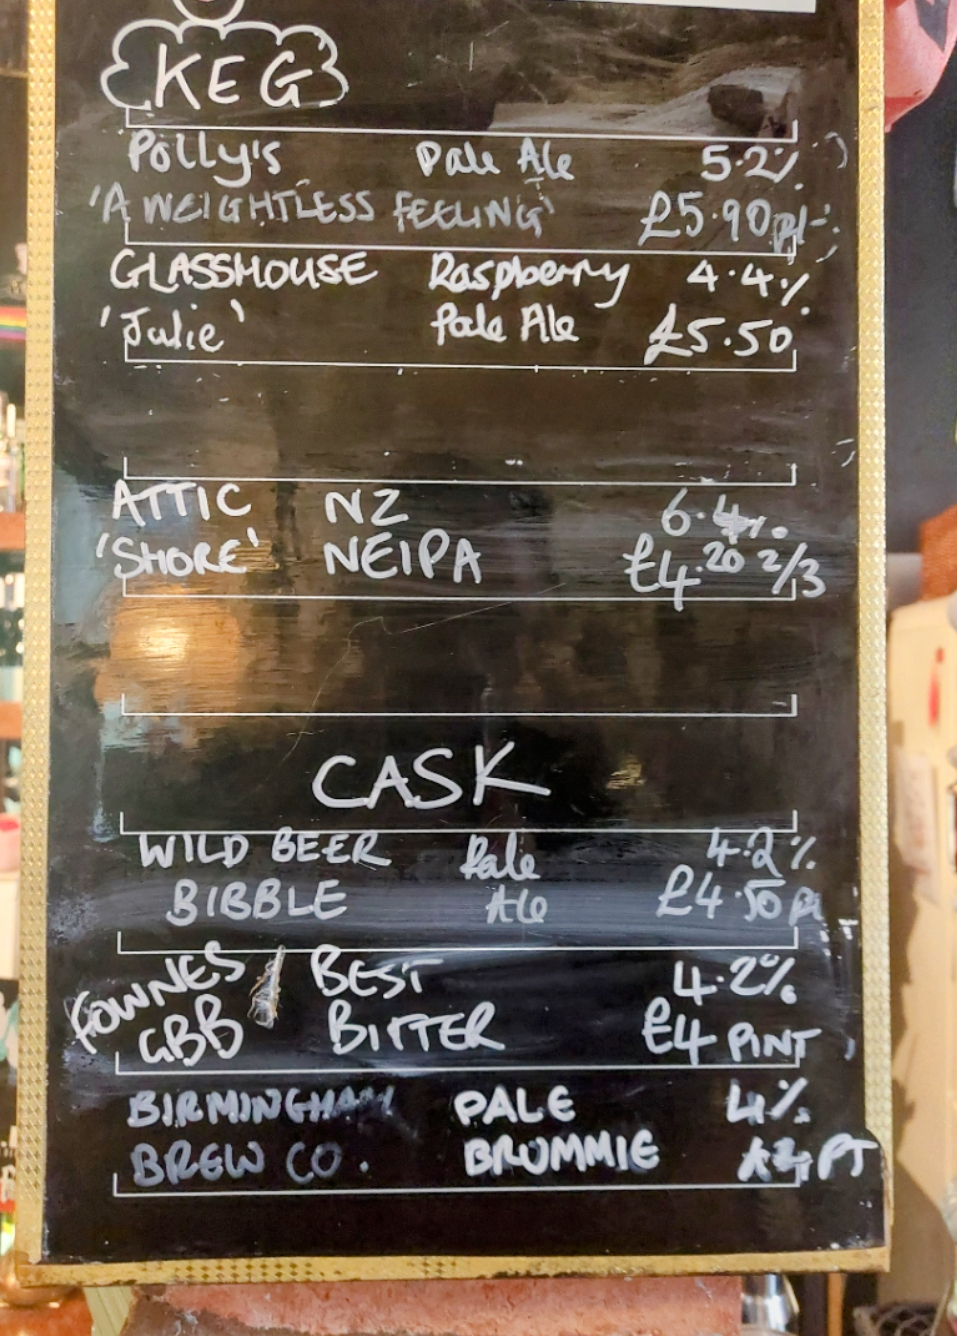 KEG
Polly's Pale Ale 5.2%
'A WEIGHTLESS FEELING' £5.90 pt
GLASSHOUSE Raspberry 4.4%
'Julie' Pale Ale £5.50
ATTIC NZ 6.4%
'SHORE' NEIPA £4.20 2/3
CASK
WILD BEER Pale 4.2%
BIBBLE Ale £4.50 pt
FOWNES BEST 4.2%
GBB BITTER £4 PINT
BIRMINGHAM PALE 4%
BREW CO. BRUMMIE PT